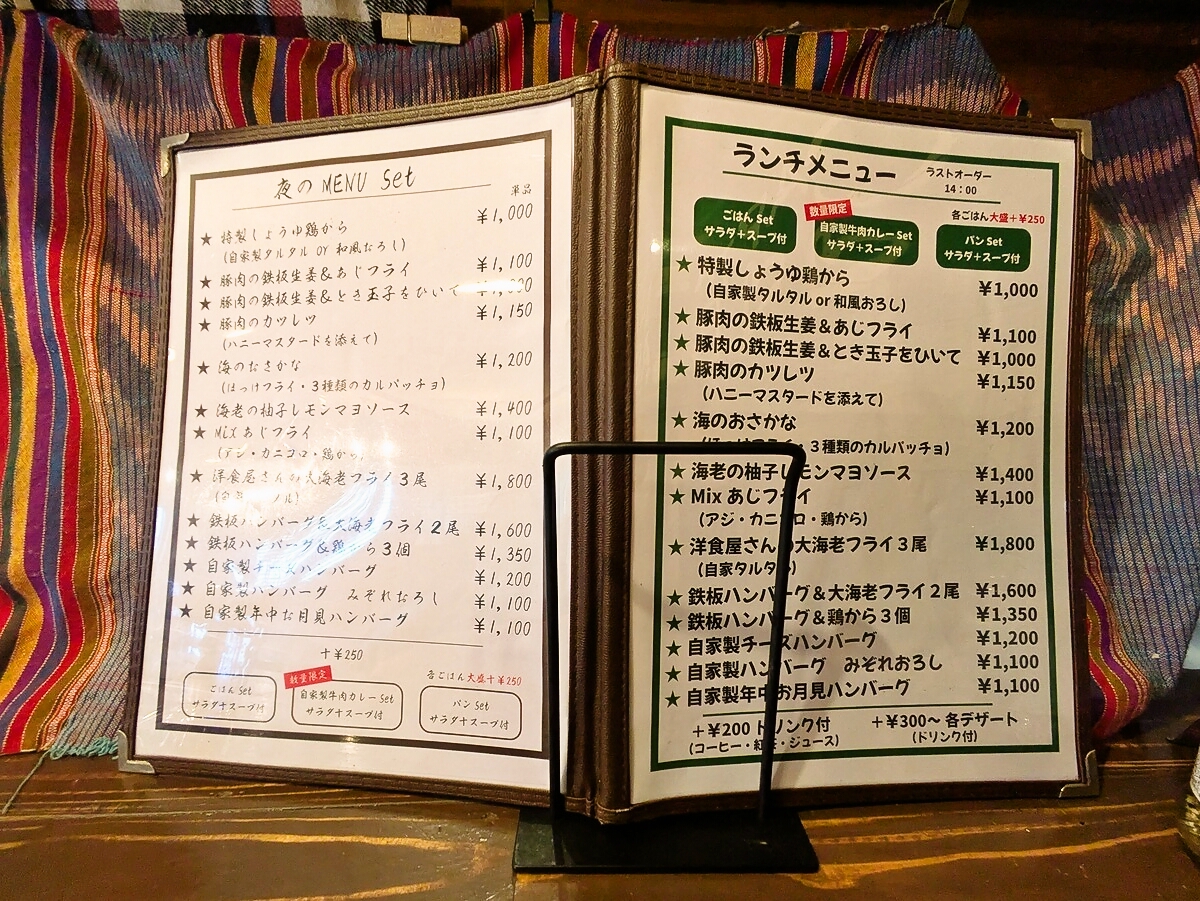 夜の MENU Set
単品
★ 特製しょうゆ鶏から ¥1,000
(自家製タルタル or 和風おろし)
★ 豚肉の鉄板生姜&あじフライ ¥1,100
★ 豚肉の鉄板生姜&とき玉子をひいて
★ 豚肉のカツレツ ¥1,150
(ハニーマスタードを添えて)
★ 海のおさかな ¥1,200
(ほっけフライ・3種類のカルパッチョ)
★ 海老の柚子レモンマヨソース ¥1,400
★ Mix あじフライ ¥1,100
(アジ・カニコロ・鶏から)
★ 洋食屋さんの大海老フライ3尾 ¥1,800
★ 鉄板ハンバーグ&大海老フライ2尾 ¥1,600
★ 鉄板ハンバーグ&鶏から3個 ¥1,350
★ 自家製チーズハンバーグ ¥1,200
★ 自家製ハンバーグ みぞれおろし ¥1,100
★ 自家製年中お月見ハンバーグ ¥1,100
+¥250
各ごはん大盛+¥250
ごはん Set
サラダ+スープ付
数量限定
自家製牛肉カレーSet
サラダ+スープ付
パン Set
サラダ+スープ付
ランチメニュー
ラストオーダー
14:00
各ごはん大盛+¥250
ごはん Set
サラダ+スープ付
数量限定
自家製牛肉カレーSet
サラダ+スープ付
パン Set
サラダ+スープ付
★ 特製しょうゆ鶏から ¥1,000
(自家製タルタル or 和風おろし)
★ 豚肉の鉄板生姜&あじフライ ¥1,100
★ 豚肉の鉄板生姜&とき玉子をひいて ¥1,000
★ 豚肉のカツレツ ¥1,150
(ハニーマスタードを添えて)
★ 海のおさかな ¥1,200
(ほっけフライ・3種類のカルパッチョ)
★ 海老の柚子レモンマヨソース ¥1,400
★ Mix あじフライ ¥1,100
(アジ・カニコロ・鶏から)
★ 洋食屋さんの大海老フライ3尾 ¥1,800
(自家タルタル)
★ 鉄板ハンバーグ&大海老フライ2尾 ¥1,600
★ 鉄板ハンバーグ&鶏から3個 ¥1,350
★ 自家製チーズハンバーグ ¥1,200
★ 自家製ハンバーグ みぞれおろし ¥1,100
★ 自家製年中お月見ハンバーグ ¥1,100
+¥200 ドリンク付 +¥300〜 各デザート
(コーヒー・紅茶・ジュース) (ドリンク付)